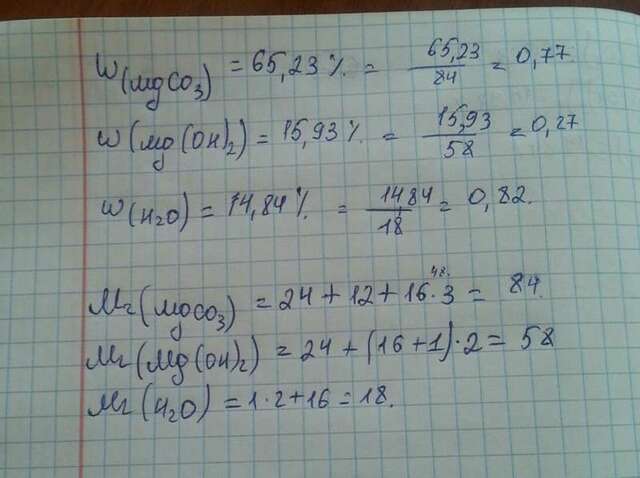 W(MgCO₃) = 65,23% = 65,23/84 = 0,77
W(Mg(OH)₂) = 15,93% = 15,93/58 = 0,27
W(H₂O) = 14,84% = 14,84/18 = 0,82.
48.
Mr(MgCO₃) = 24 + 12 + 16·3 = 84.
Mr(Mg(OH)₂) = 24 + (16+1)·2 = 58
Mr(H₂O) = 1·2+16 = 18.